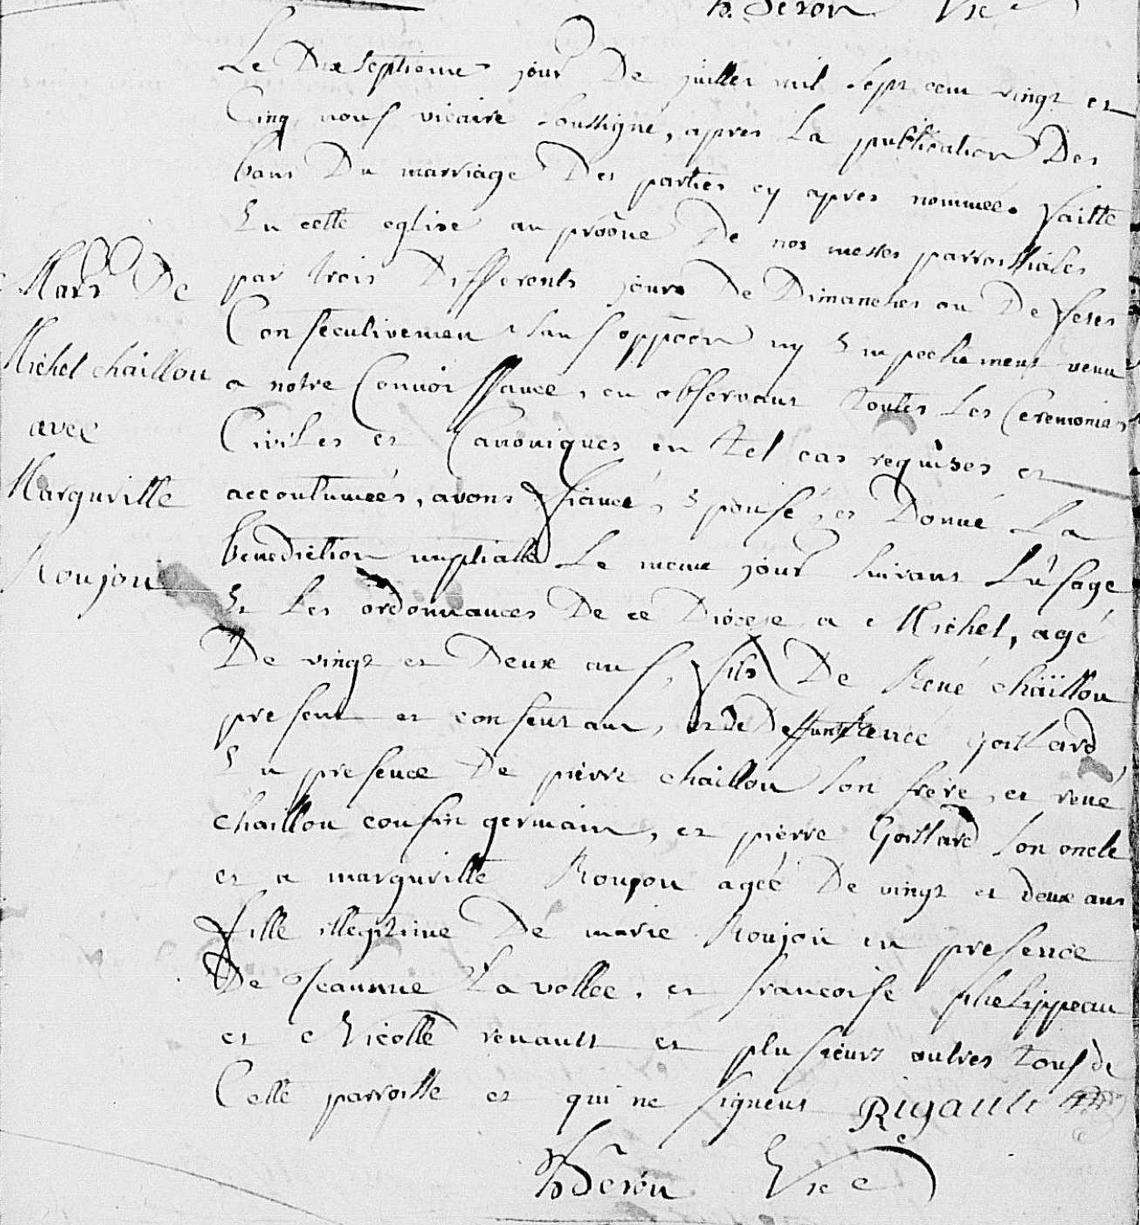 h. Deron Vic
Le Dixseptieme jour De juillet mil sept cent vingt et
Cinq nous vicaire soussigné, apres La publication Des
bans Du marriage Des parties cy apres nommées faitte
En cette eglise au proône De nos messes parroissiales
par trois Differents jours De Dimanches ou De festes
Consecutivement sans opp̄oōn ny Empechement venu
a notre Connoissance, en observant toutes Les Ceremonies
Civiles et Canoniques en tel cas requises et
accoutumeés, avons fiancé, Epousé, et Donné La
benediction nuptialle Le meme jour suivant L'usage
Et Les ordonnances De ce Diocese a Michel, agé
De vingt et Deux ans, fils De René chaïllou
present et consentant, et de Deffunte rence Gaillard
En presence De pierre chaillou son frere, et rené
chaillou cousin germain, et pierre Gaillard son oncle
et a margueritte Roujou ageé De vingt et deux ans
fille illegitime De marie Roujou en presence
De Jeannne La vollee, et francoise phelippeau
et Nicolle renault et plusieurs autres tous de
Cette parroisse et qui ne signent Rigault
h Deron Vic
Mars De
Michel chaillou
avec
Marguritte
Roujou